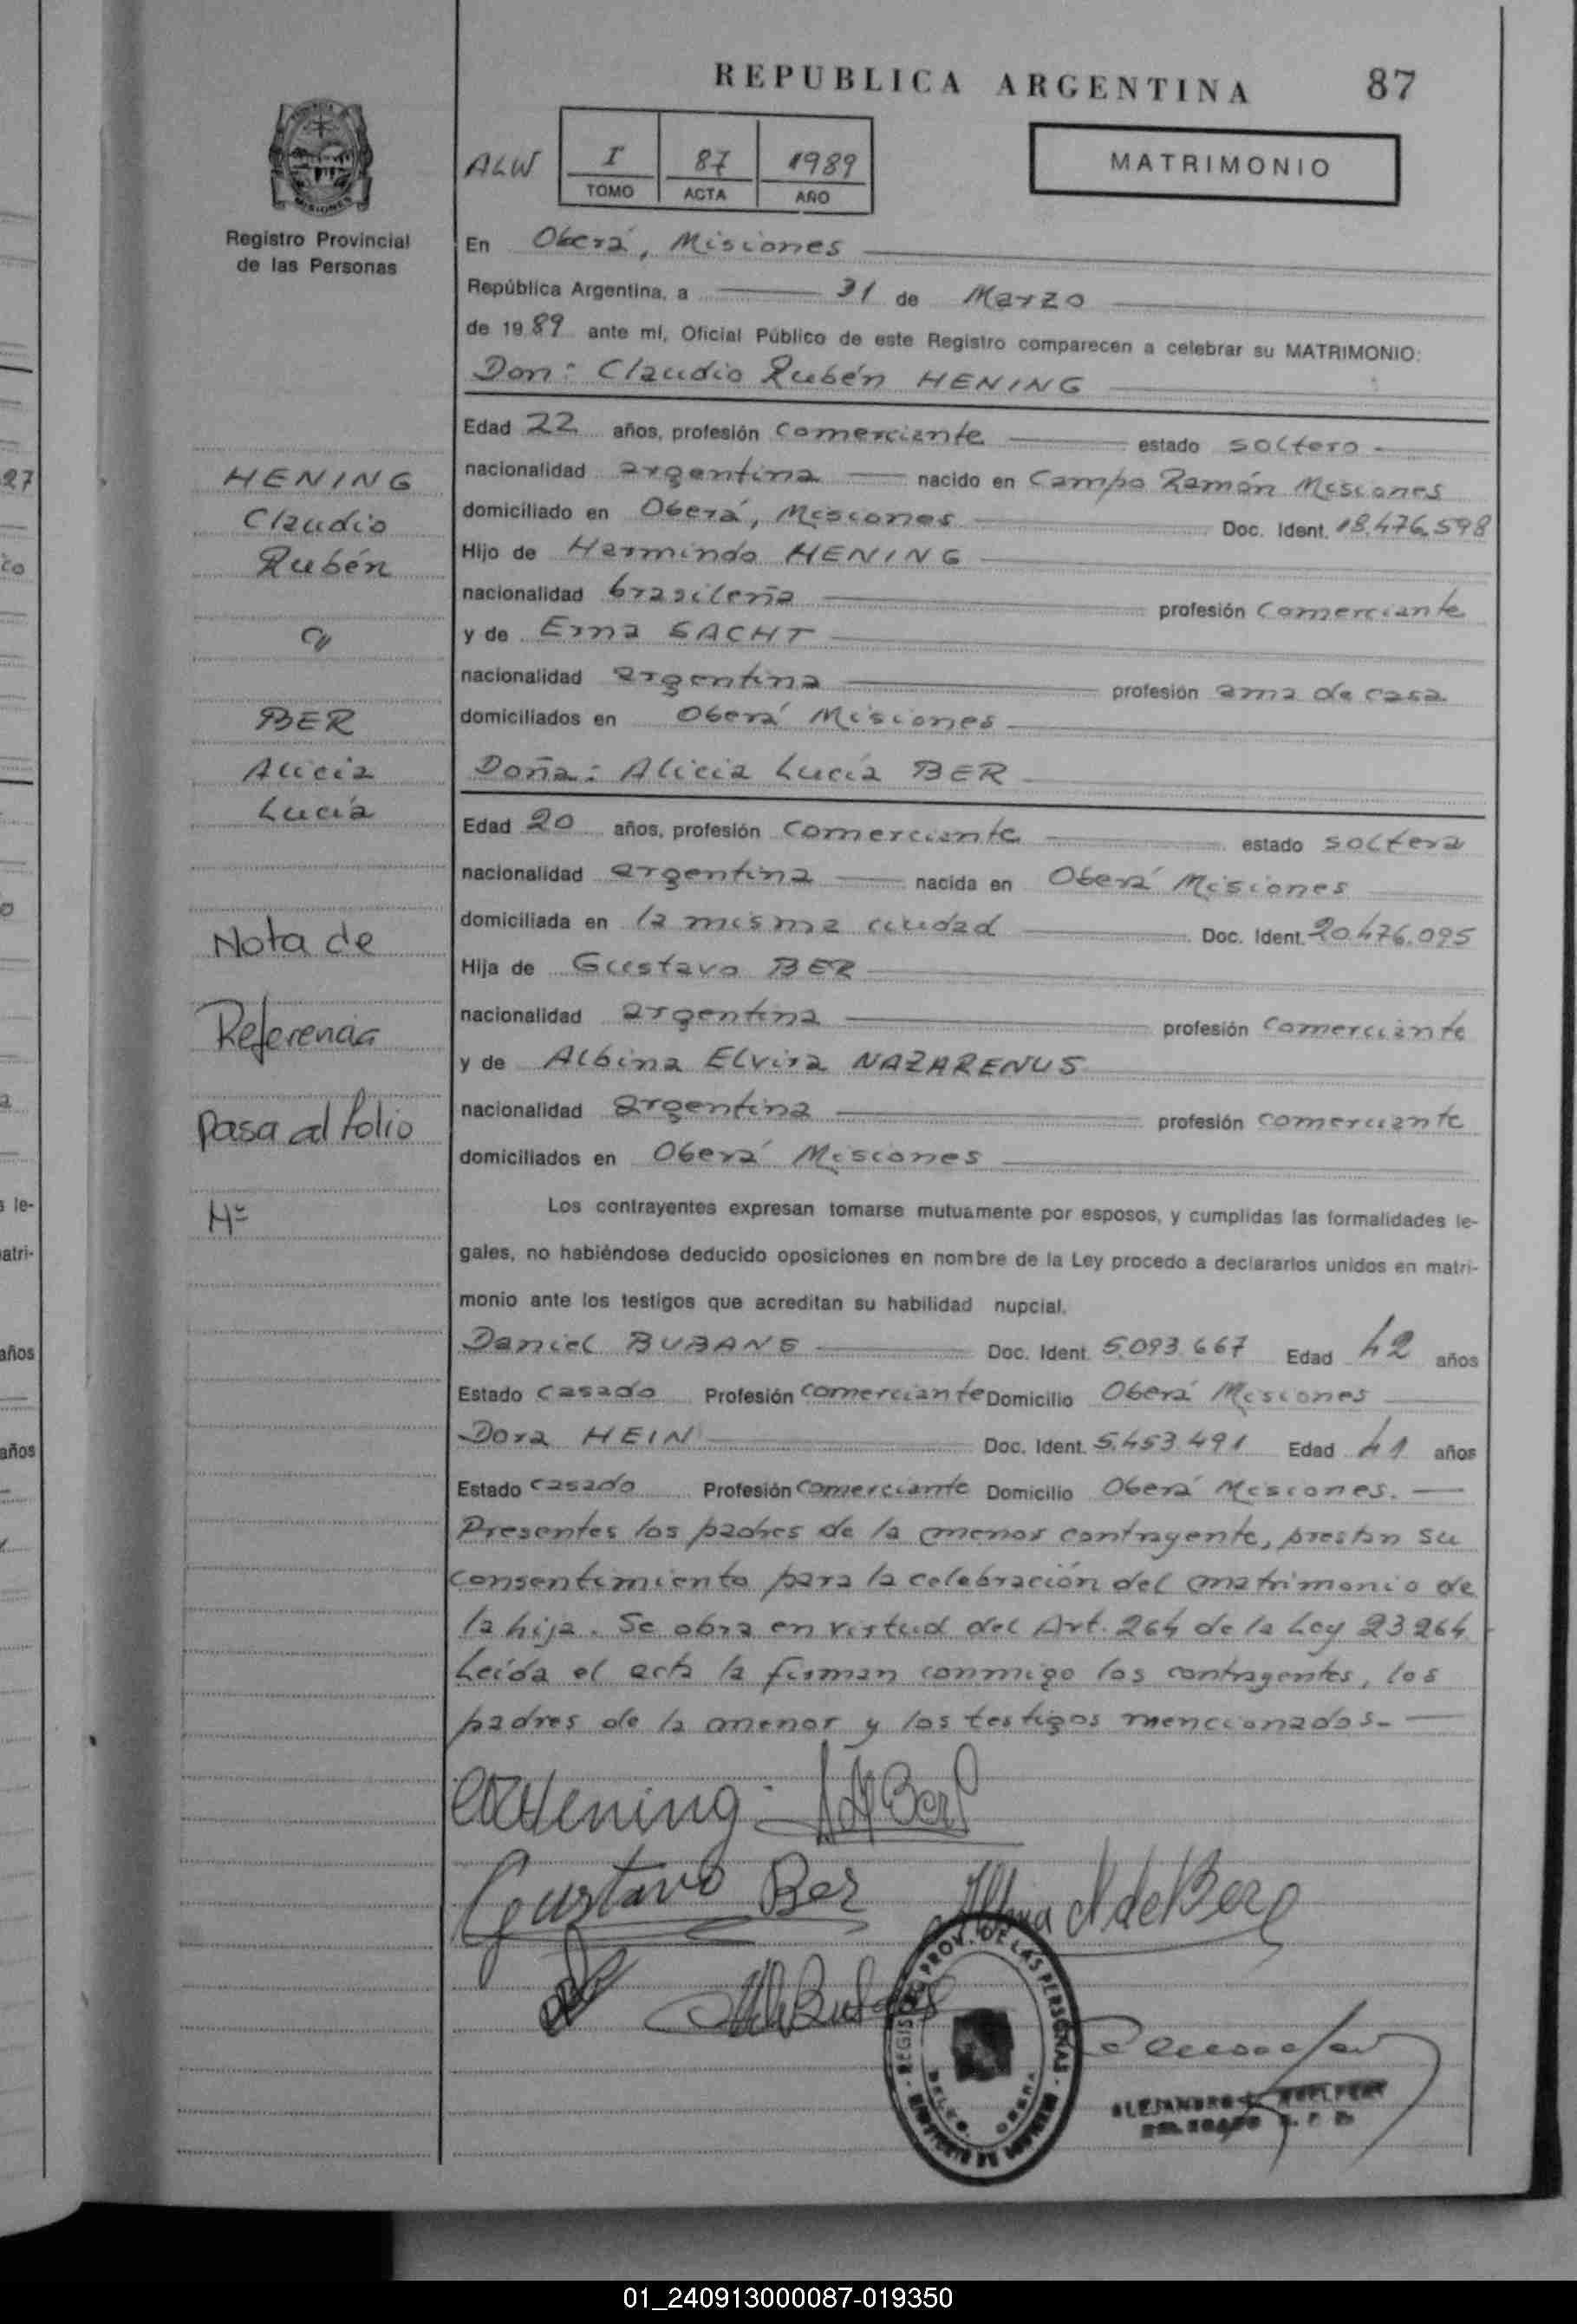 REPUBLICA ARGENTINA
87
ALW
I
87
1989
TOMO
ACTA
AÑO
MATRIMONIO
MISIONES
Registro Provincial
de las Personas
En Oberá, Misiones
República Argentina, a 31 de Marzo
de 1989 ante mí, Oficial Público de este Registro comparecen a celebrar su MATRIMONIO:
Don: Claudio Rubén HENING
Edad 22 años, profesión comerciante estado soltero
nacionalidad argentina nacido en Campo Ramón Misiones
domiciliado en Oberá, Misiones Doc. Ident. 18.476.598
Hijo de Hermindo HENING
nacionalidad brasileña profesión comerciante
y de Erna SACHT
nacionalidad argentina profesión ama de casa
domiciliados en Oberá Misiones
Doña: Alicia Lucía BER
Edad 20 años, profesión comerciante estado soltera
nacionalidad argentina nacida en Oberá Misiones
domiciliada en la misma ciudad Doc. Ident. 20.476.095
Hija de Gustavo BER
nacionalidad argentina profesión comerciante
y de Albina Elvira NAZARENUS
nacionalidad argentina profesión comerciante
domiciliados en Oberá Misiones
Los contrayentes expresan tomarse mutuamente por esposos, y cumplidas las formalidades le-
gales, no habiéndose deducido oposiciones en nombre de la Ley procedo a declararlos unidos en matri-
monio ante los testigos que acreditan su habilidad nupcial.
Daniel BUBANS Doc. Ident. 5.093.667 Edad 42 años
Estado casado Profesión comerciante Domicilio Oberá Misiones
Dora HEIN Doc. Ident. 5.453.491 Edad 41 años
Estado casado Profesión comerciante Domicilio Oberá Misiones.
Presentes los padres de la menor contrayente, prestan su
consentimiento para la celebración del matrimonio de
la hija. Se obra en virtud del Art. 264 de la Ley 23264.
Leída el acta la firman conmigo los contrayentes, los
padres de la menor y los testigos mencionados.
HENING
Claudio
Rubén
c/
BER
Alicia
Lucía
Nota de
Referencia
Pasa al folio
Nº
Hening
Ber
Gustavo Ber
Albina N de Ber
REGISTRO PROV. DE LAS PERSONAS
OBERA
01_240913000087-019350